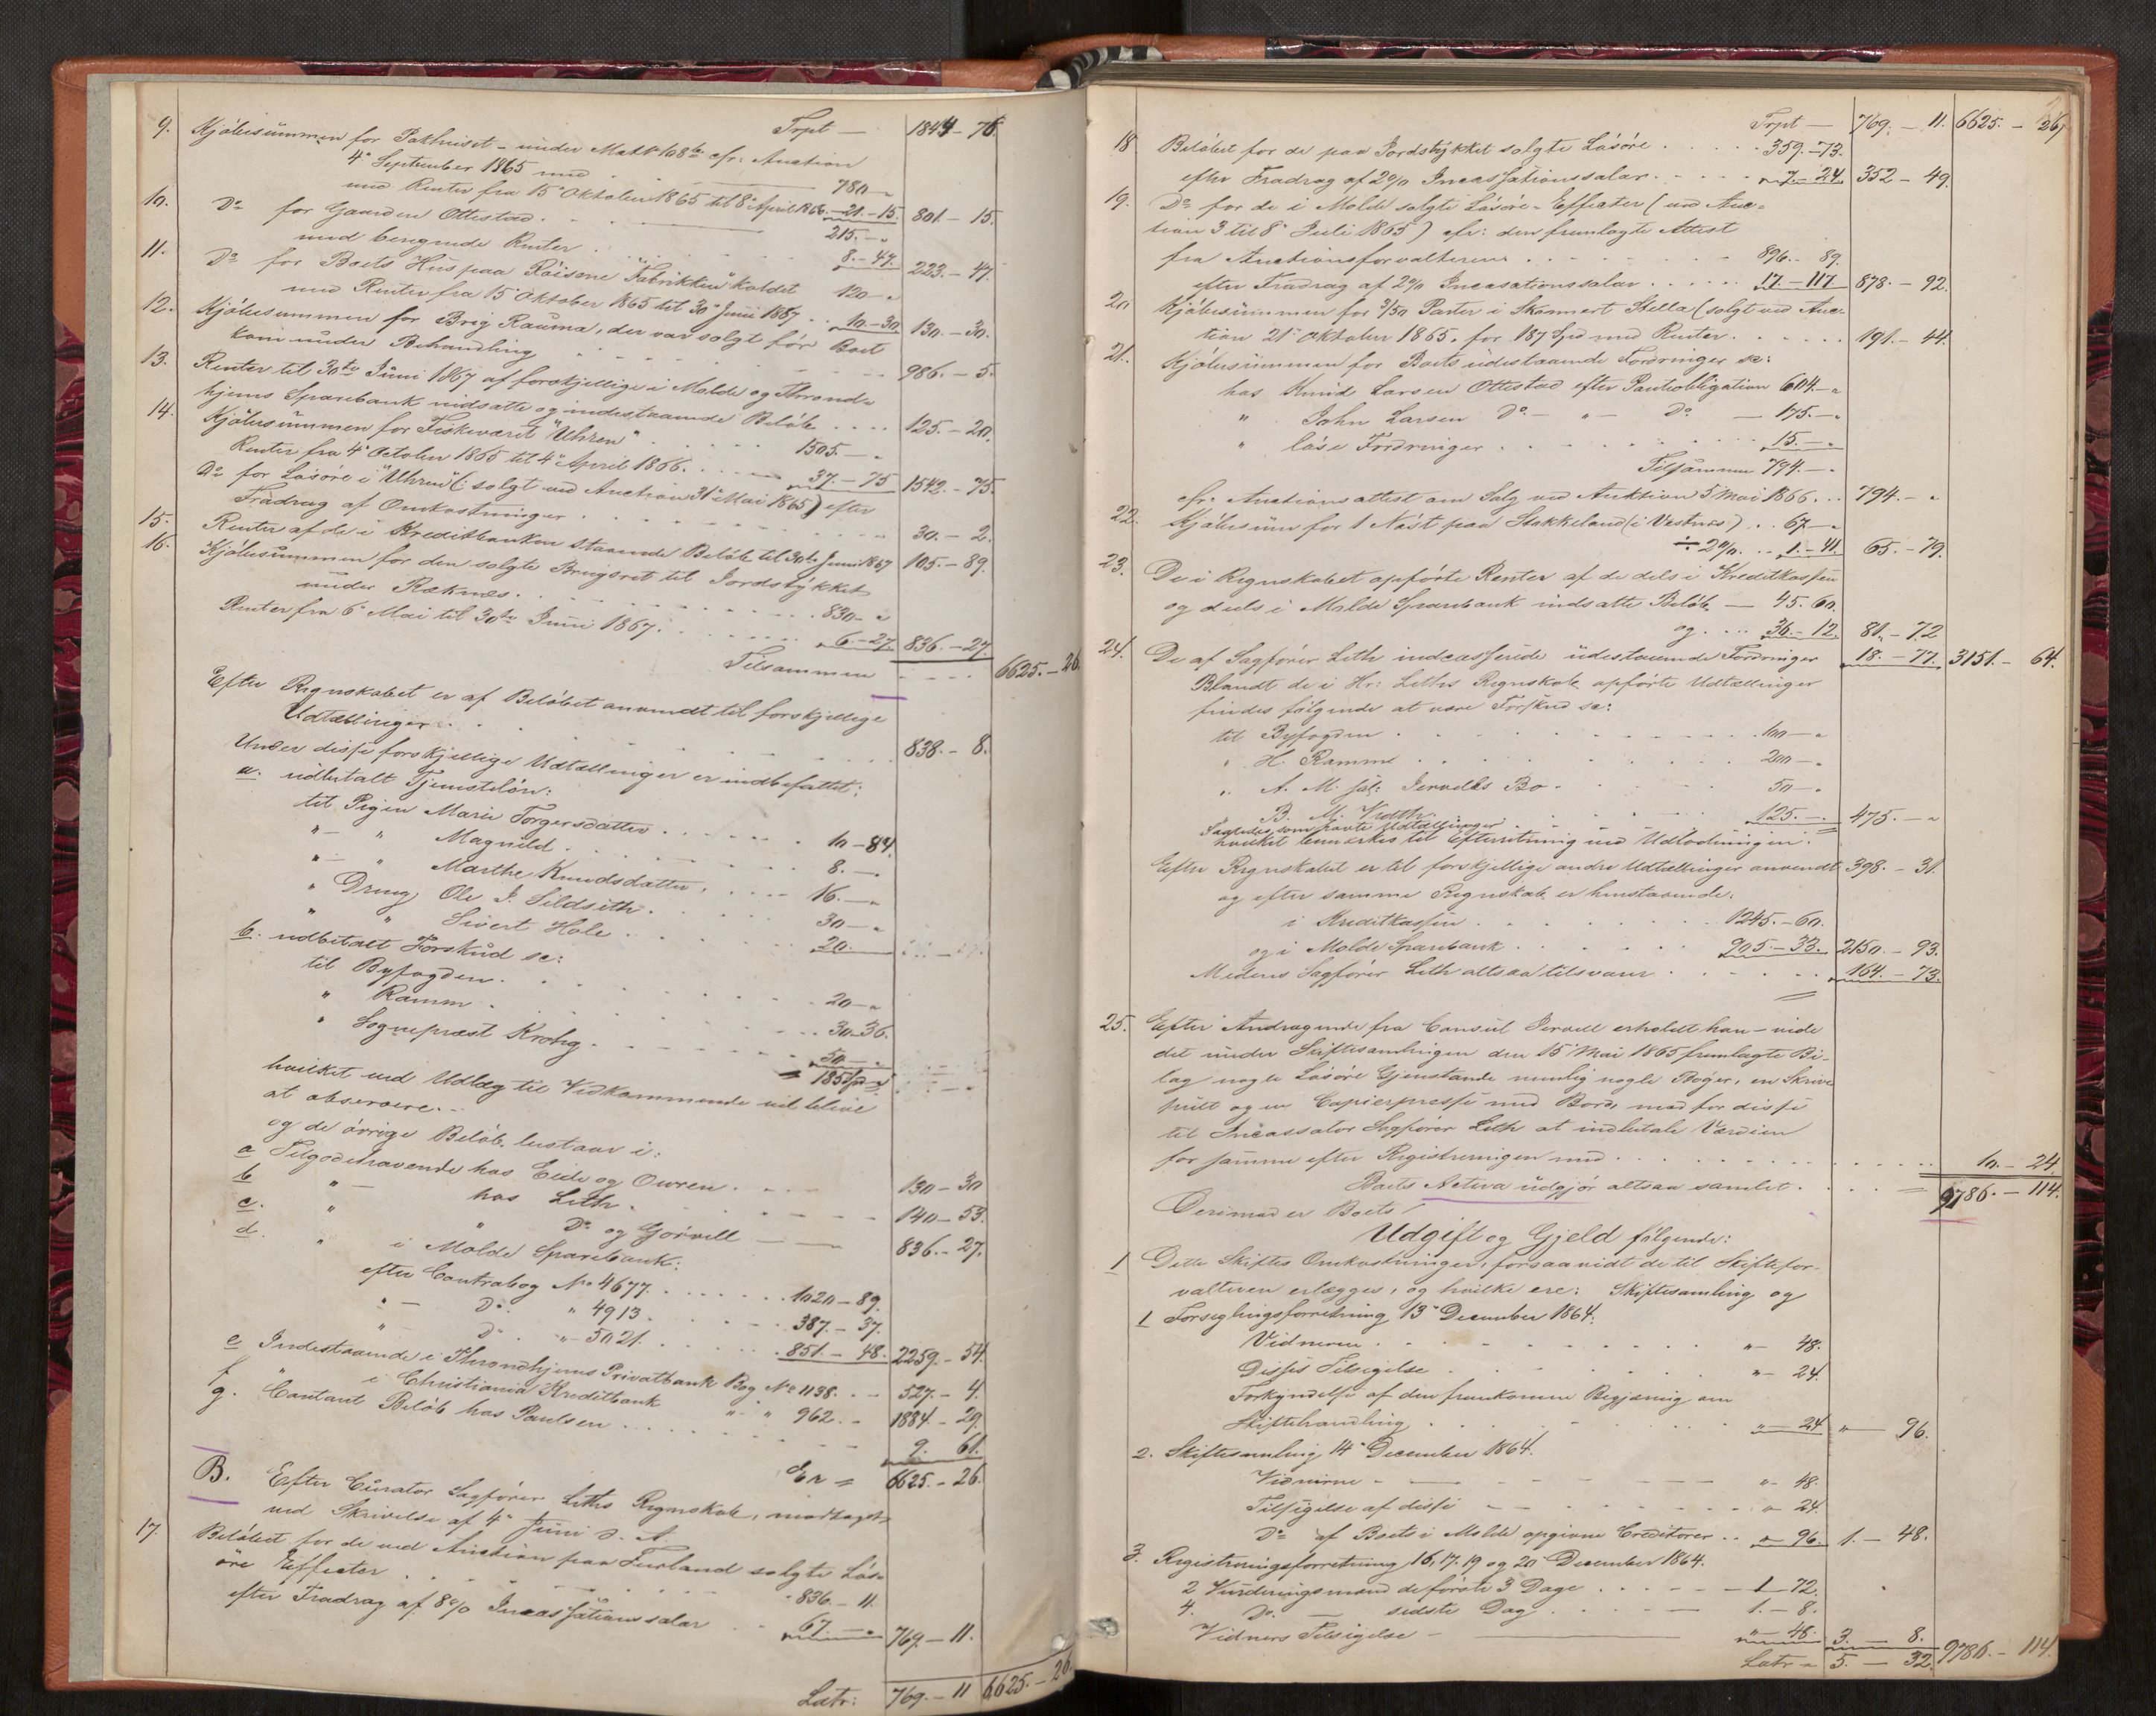 Trpt — 1844 - 76.
9. Kjöbesummen for Pakhuset - under Matr No 108 cfr. Auction
4de September 1865 med 780 — "
med Renter fra 15de Oktober 1865 til 8de April 1866. — 21. — 15. 801. — 15.
10. Do for Gaarden Ottestad. 215. — "
med beregnede Renter 8. — 47. 223. — 47.
11. Do for Boets Hus paa Röisene "Fabrikken" kaldet 120 — "
med Renter fra 15 Oktober 1865 til 30de Juni 1867 10 — 30 130. — 30.
12. Kjöbesummen for Brig Rauma, der var solgt för Boet
kom under Behandling 986. — 5.
13. Renter til 30te Juni 1867 af forskjellige i Molde og Thrond-
hjems Sparebank nidsatte og indestaaende Belöb 125. — 20.
14. Kjöbesummen for Fiskeværet "Uhren" 1505. — "
Renter fra 4de October 1865 til 4de April 1866. 37. — 75 1542. — 75.
Do for Lösöre i "Uhren" (: solgt ved Auction 31te Mai 1865) efter
Fradrag af Omkostninger 30. — 2.
15. Renter af de i Kreditbanken staaende Belöb til 30te Juni 1867 105. — 89.
16. Kjöbesummen for den solgte Brugsret til Jordstykket
under Reknæs. 830 — "
Renter fra 6te Mai til 30te Juni 1867. 6. — 27. 836. — 27.
Tilsammen 6625. — 26.
Efter Regnskabet er af Belöbet anvendt til forskjellige
Udtællinger 838. — 8.
Under disse forskjellige Udtællinger er indbefattet:
a. udbetalt Tjenestelön:
til Pigen Marie Torgersdatter 10 — 84.
" — " Magnild 8. — "
" — " Marthe Knudsdatter, 16. — "
" Dreng Ole J. Sildseth. 30 — "
" " Sivert Hole. 20. —
b. udbetalt Forskud sc:
til Byfogden. 20 — "
" Ramm. 30 — 36.
" Sognepræst Krohg. 50 — "
= 185 Spd
hvilket ved Udlæg til Vedkommende vil blive
at observere. -
og de övrige Belöb bestaar i:
a Tilgodehavende hos Eide og Owren. 130 — 30
b " — hos Leth. 140 — 53.
c. " " Do og Görvell 836. — 27.
d. " i Molde Sparebank:
efter Contrabog No 4677. 1020 — 89.
" — Do. " 4913. 387. — 37.
" — Do. " 5021. 851. — 48. 2259. — 54.
e Indestaaende i Throndhjems Privatbank Bog No 1138. 527. — 4.
f " i Christiania Kreditbank " " 962. 1884. — 29.
g. Contant Belöb hos Paulsen 9. 61.
Er = 6625. — 26.
B. Efter Curator Sagförer Leths Regnskab, modtaget
ved Skrivelse af 4de Juni d. A.
17. Belöbet for de ved Auction paa Furland solgte Lös-
öre Effecter 836. — 11.
efter Fradrag af 8% Incassationssalar 67. — " 769. — 11.
Latr: 769. — 11 6625. — 26.
Trpt — 769. — 11. 6625. — 26,
18 Belöbet for de paa Jordstykket solgte Lösöre 359. — 73.
efter Fradrag af 2% Incassationssalar. 7. 24. 352 — 49.
19. Do for de i Molde solgte Lösöre-Effecter (ved Auc-
tion 3 til 8de Juli 1865) cfr: den fremlagte Attest
fra Auctionsforvalteren 896. — 89.
efter Fradrag af 2% Incasationssalar 17. — 117. 878. — 92.
20 Kjöbesummen for 3/50 Parter i Skonnert Stella (solgt ved Auc-
tion 21de Oktober 1865. for 187 Spd med Renter. 191. — 44.
21. Kjöbesummen for Boets udestaaende Fordringer sc:
hos Knud Larsen Ottestad efter Panteobligation 604. — "
" John Larsen Do. — " — Do. — 175. — "
" löse Fordringer 15. — "
Tilsammen 794. — "
cfr. Auctionsattest om Salg ved Auktion 5 Mai 1866. 794. — "
22. Kjöbesum for 1 Nöst paa Stokkeland (i Vestnes) 67 — "
÷ 2% 1. — 41. 65. — 79.
23. De i Regnskabet opförte Renter af de dels i Kreditkassen
og deels i Molde Sparebank indsatte Belöb — 45. 60.
og 36. — 12. 81. — 72
24. De af Sagförer Leth indcasserede udestaaende Fordringer 18. — 77. 3151. — 64.
Blandt de i Hr. Leths Regnskab opförte Udtællinger
findes fölgende at være Forskud sc:
til Byfogden 100 — "
" H. Ramm 200 — "
" A. M. sal: Jervells Bo 50 — "
B. M. Vidth 125. — 475. — "
hvilket bemærkes til Efterretning ved Udlodningen.
Efter Regnskabet er til forskjellige andre Udtællinger anvendt 398. — 31.
og efter samme Regnskab er henstaaende:
i Kreditkassen 1245. — 60.
og i Molde Sparebank 905. — 33. 2150. — 93.
Medens Sagförer Leth altsaa tilsvarer 164. — 73.
25. Efter Andragende fra Consul Jervell erholdt han — vide
det under Skiftesamlingen den 15de Mai 1865 fremlagte Bi-
lag nogle Lösöre Gjenstande nemlig nogle Böger, en Skrive
pult og en Copierpresse med Bord, mod for disse
til Incassator Sagförer Leth at indbetale Værdien
for samme efter Registreringen med 10. — 24.
Boets Activa udgjör altsaa samlet. 9786. — 114.
Derimod er Boets
Udgift og Gjeld fölgende:
1 Dette Skiftes Omkostninger, forsaavidt de til Skiftefor-
valteren erlægges, og hvilke ere: Skiftesamling og
1 Forseglingsforretning 13de December 1864.
Vidnerne " — 48.
Disses Tilsigelse " — 24.
Forkyndelse af den fremkomne Begjæring om
Skiftebehandling " — 24 " — 96.
2. Skiftesamling 14de December 1864.
Vidnerne " — 48.
Tilsigelse af disse " 24.
Do af Boets i Molde opgivne Creditorer " — 96. 1. — 48.
3. Registreringsforretning 16, 17. 19 og 20de December 1864.
2 Vurderingsmænd de förste 3 Dage 1 — 72.
4. Do. — sidste Dag 1. — 8.
Vidners Tilsigelse — " — 48. 3. — 8.
Latr — 5. — 32. 9786. — 114.